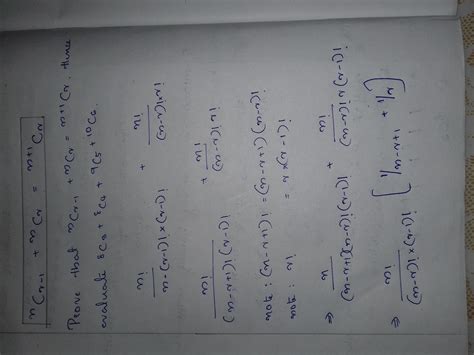 ⁿCᵣ₋₁ + ⁿCᵣ = ⁿ⁺¹Cᵣ
Prove that ⁿCᵣ₋₁ + ⁿCᵣ = ⁿ⁺¹Cᵣ. Hence
evaluate ⁸C₀ + ⁸C₆ + ⁹C₅ + ¹⁰C₆.
n! / n-(r-1)! × (r-1)! + n! / (n-r)! r!
n! / (n-r+1)! (r-1)! + n! / (n-r)! r!
note : (n-r+1)! = (n-r+1) (n-r)!
note : r! = r × (r-1)!
⇒ n! / (n-r+1)(n-r)! (r-1)! + n! / (n-r)! r (r-1)!
⇒ n! / (n-r)! × (r-1)! [ 1/n-r+1 + 1/r ]